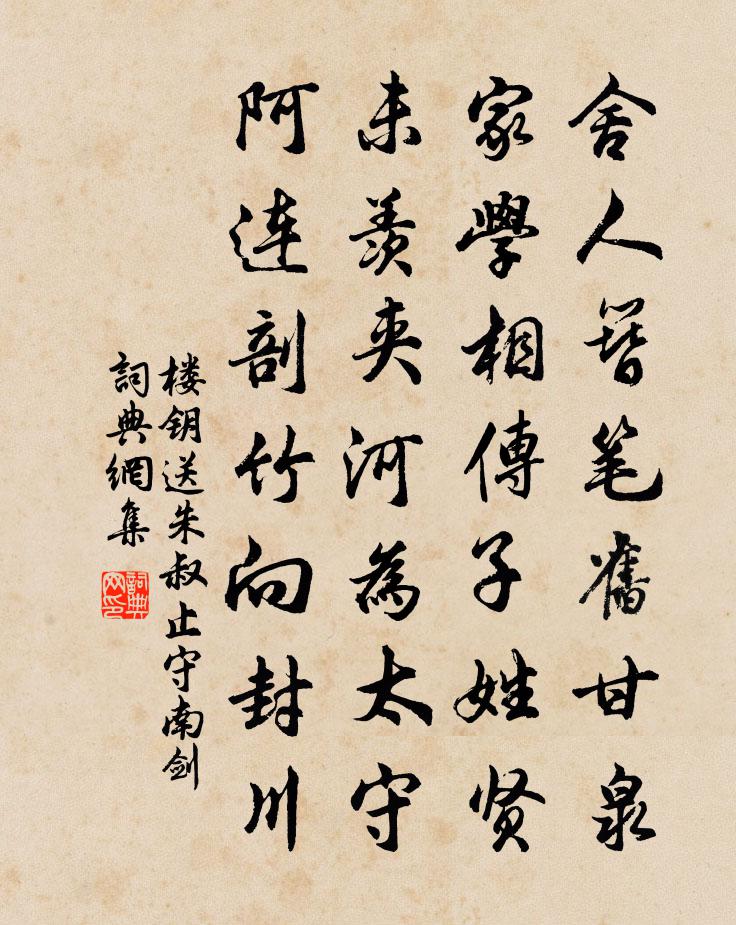 舍人簪笔舊甘泉
家學相傳子姓贤
未羨夹河為太守
阿连剖竹向封川
楼钥送朱叔止守南剑
詞典網集
詞典网印